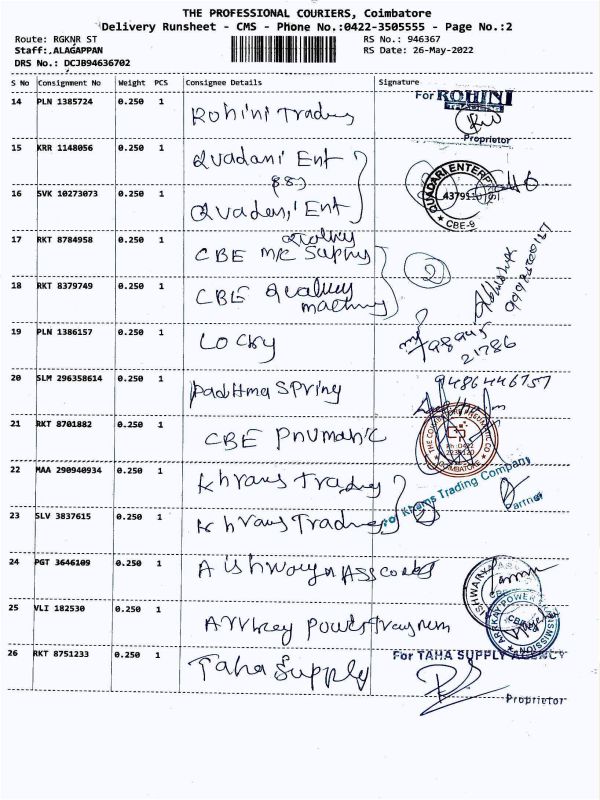 THE PROFESSIONAL COURIERS, Coimbatore
Delivery Runsheet - CMS - Phone No.:0422-3505555 - Page No.:2
Route: RGKNR ST
RS No.: 946367
Staff:,ALAGAPPAN
RS Date: 26-May-2022
DRS No.: DCJB94636702
S No Consignment No Weight PCS Consignee Details Signature
14 PLN 1385724 0.250 1 Rohini Trading
For ROHINI
Proprietor
15 KRR 1148056 0.250 1 Quadani Ent
16 SVK 10273073 0.250 1 Quadani Ent
QUADARI ENTERP
CBE-9
17 RKT 8784958 0.250 1 CBE M/C Supplys
2
18 RKT 8379749 0.250 1 CBE
19 PLN 1386157 0.250 1 Locky
98945
21786
20 SLM 296358614 0.250 1 Padhma Spring
9486446757
21 RKT 8701882 0.250 1 CBE Pnumatic
THE COIMBATORE PNEUMATIC CO
COIMBATORE
22 MAA 290940934 0.250 1 Khrams Trading
For Khams Trading Company
Partner
23 SLV 3837615 0.250 1 Khrams Trading
24 PGT 3646109 0.250 1 Aishwarya
25 VLI 182530 0.250 1 Arrkey
ARRKAY POWER TRANSMISSION
CBE
26 RKT 8751233 0.250 1 Taha Supply
For TAHA SUPPLY AGENCY
Proprietor